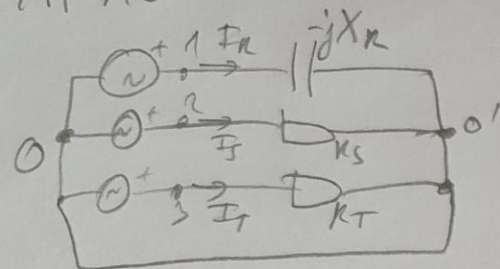 + 1 I_R -jX_R
~
+ 2
~ I_S R_S
0 0'
+
~ 3 I_T R_T